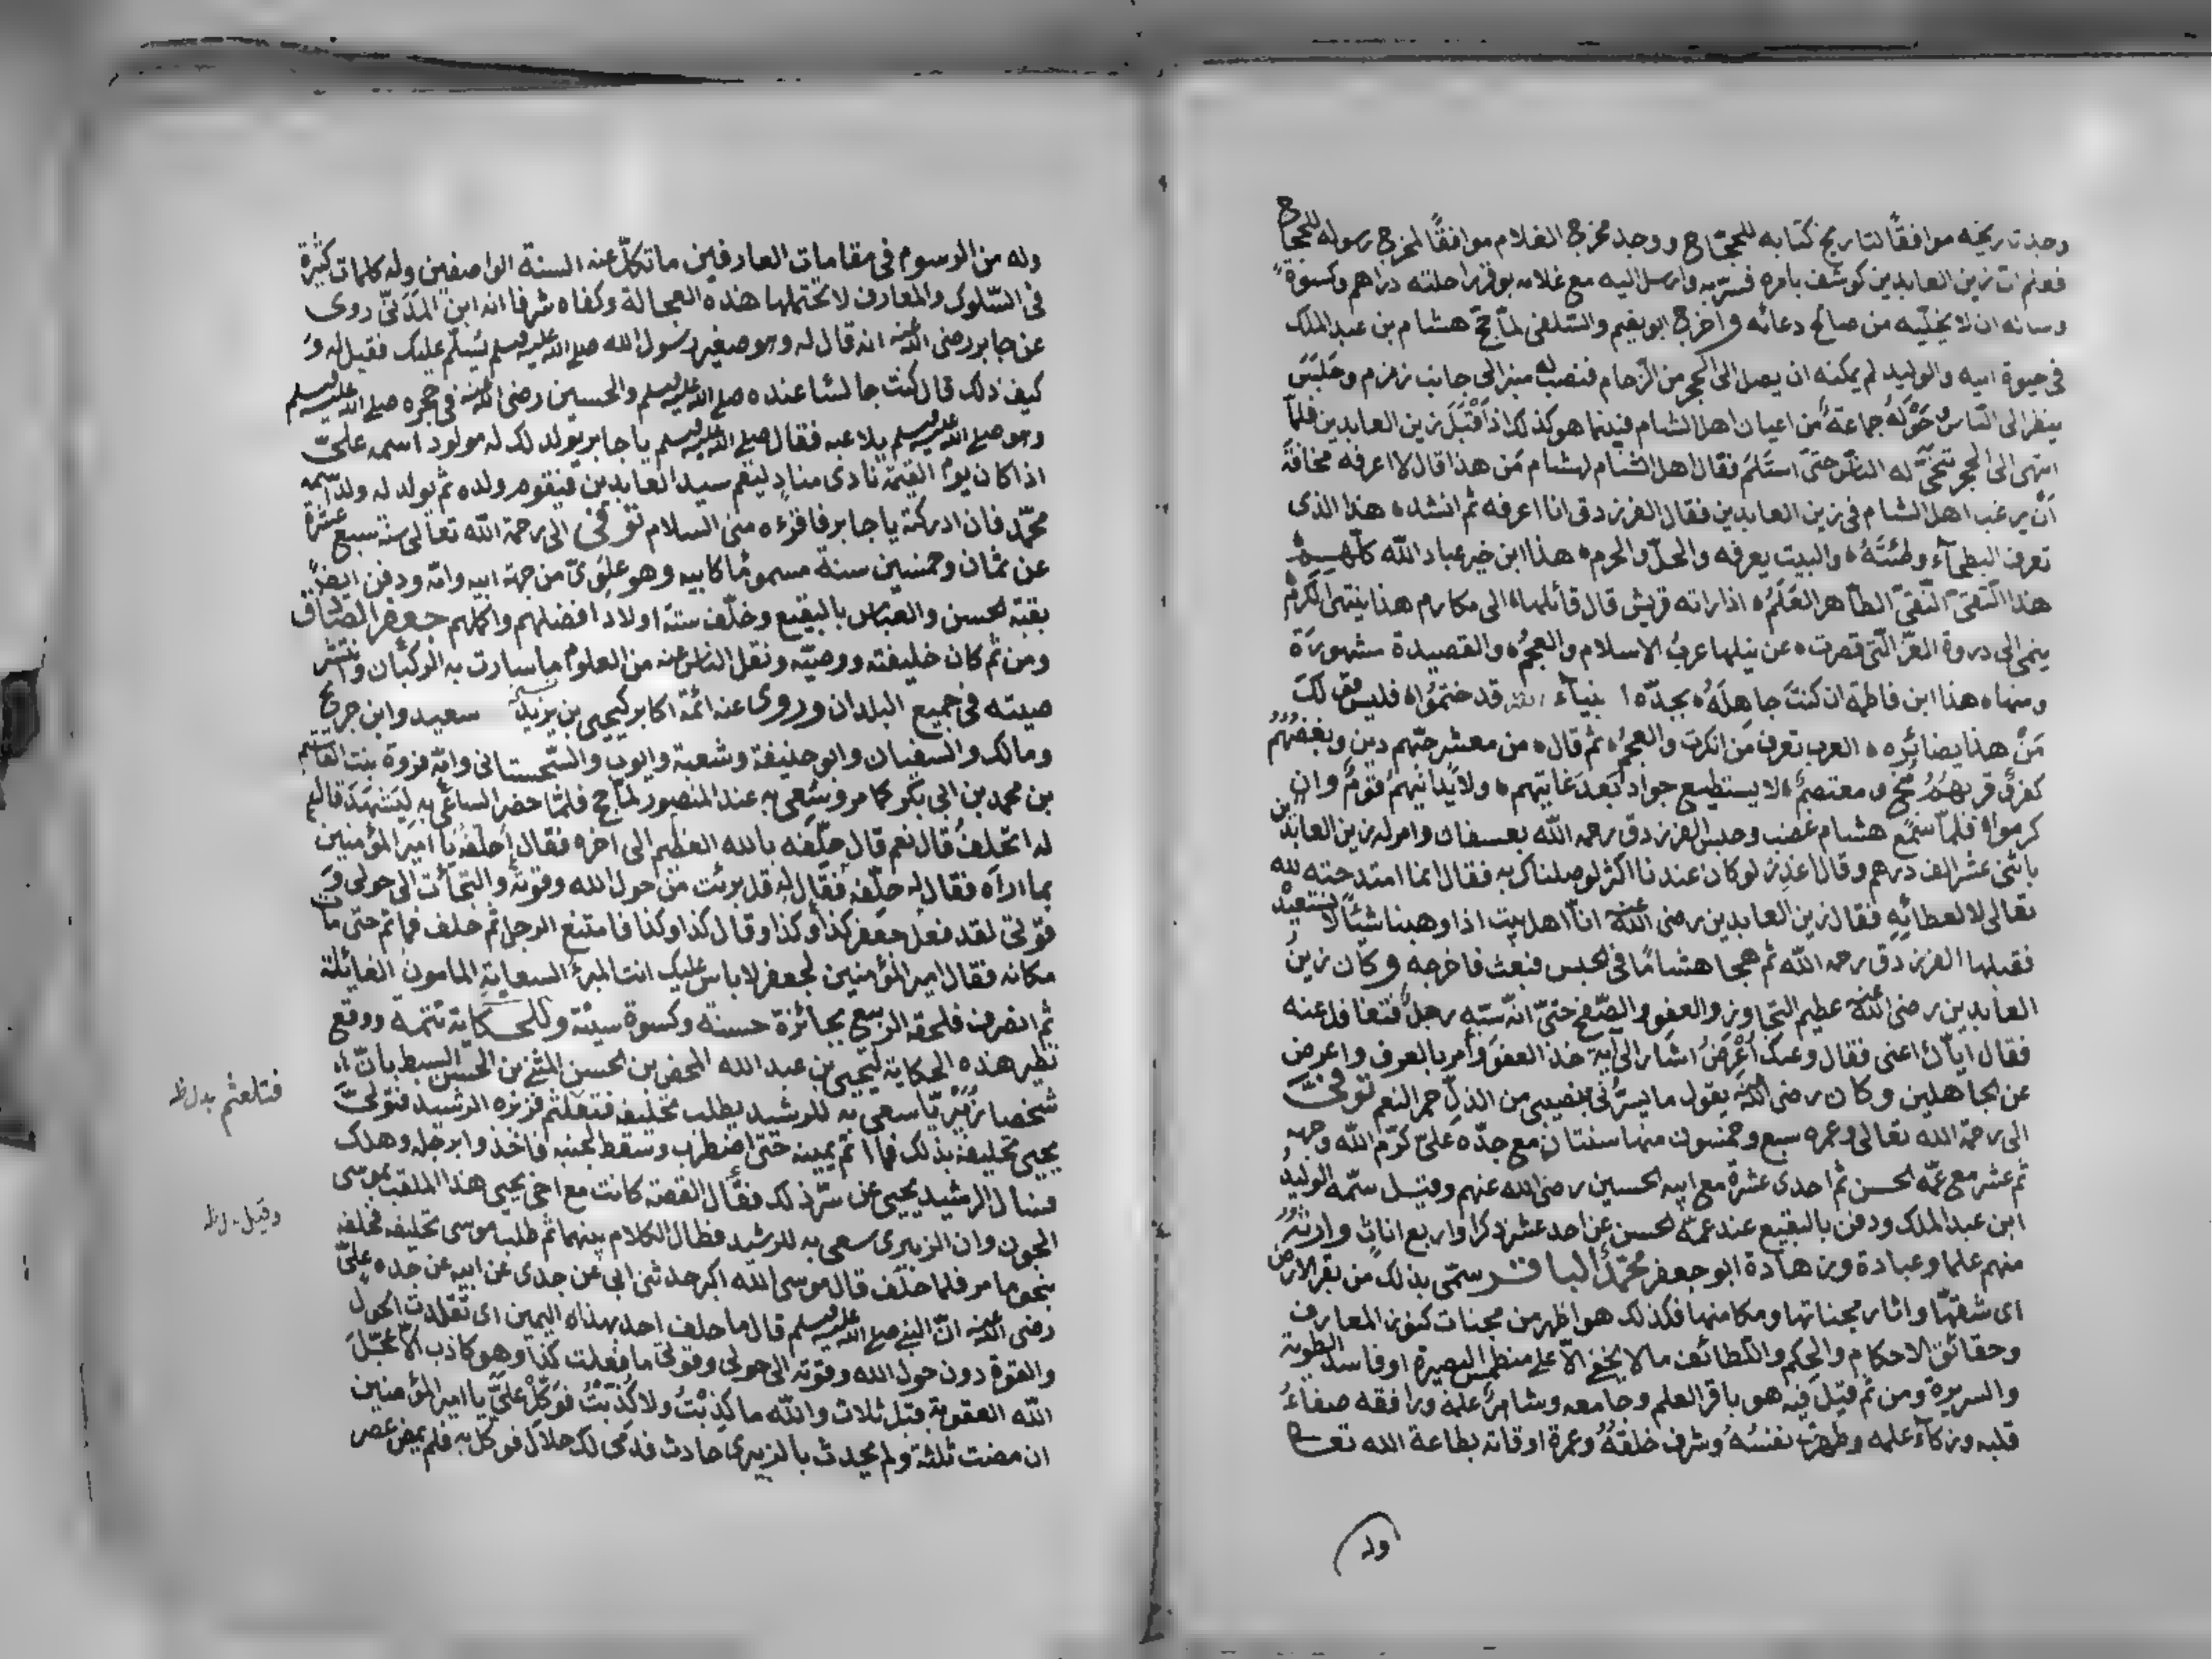 وجدت تاريخه موافقًا لتاريخ كتابه للحجّاج ووجد مخرج الغلام موافقًا لمخرج رسوله للحجاج
فعلم ان زين العابدين كوشف بامره فسرّ به وارسل اليه مع غلامه بوقر راحلته دراهم وكسوةً
وساله ان لا يخلّيه من صالح دعائه واخرج ابو نعيم والسّلفى لمّا حجّ هشام بن عبد الملك
فى حيوة ابيه والوليد لم يمكنه ان يصل الى الحجر من الزّحام فنصب له منبر الى جانب زمزم وجَلَسَ
ينظر الى النّاس وحَوْلَهُ جماعة من اعيان اهل الشام فبينما هو كذلك اذ اَقْبَلَ زين العابدين فلمّا
انتهى الى الحجر تَنَحّى له النّاس حتى استَلَمَ فقال اهل الشام لهشام مَن هذا قال لا اعرفه مخافةَ
اَنْ يرغب اهل الشام فى زين العابدين فقال الفرزدق انا اعرفه ثم انشده هذا الذى
تعرف البطحآء وطئتَهُ والبيت يعرفه والحلّ والحرم هذا ابن خير عباد اللّه كلّهم
هذا التّقىّ النّقىّ الطّاهر العَلَمُ اذا راته قريش قال قائلها الى مكارم هذا ينتهى الكَرَمُ
ينمى الى دروة العزّ الّتى قصرت عن نيلها عربُ الاسلام والعجمُ والقصيدة مشهورة
ومنها هذا ابن فاطمة ان كنتَ جاهِلَهُ بجدّه انبيآء اللّه قد ختموا فليس قولك
مَنْ هذا بضائِره العرب تعرف مَن انكرت والعجمُ ثم قال من معشر حبّهم دين وبغضُهُم
كفرٌ وقربهُمُ مُنْجٍ ومعتصمُ لا يستطيع جواد بَعدَ غايتهم ولا يُدانيهِم قومٌ وان
كرموا فلمّا سَمِع هشام غضب وحبس الفرزدق رحمه اللّه بعسفان وامر له زين العابدين
باثنى عشر الف درهم وقال اعذِرْ لو كان عندنا اكثر لوصلناك به فقال انما امتدحته للّه
تعالى لا لعطائه فقال زين العابدين رضى اللّه عنه انّا اهل بيت اذا وهبنا شيئًا لا نستعيدُ
فقبلها الفرزدق رحمه اللّه ثم هجا هشامًا فى الحبس فبعث فاخرجه وكان زين
العابدين رضى اللّه عنه عظيم التّجاوز والعفو والصّفح حتى انّه سَبّه رجلٌ فتغافل عنه
فقال ايّاك اعنى فقال وعنك اُعْرِضُ اشار الى اية خذ العفو وأمر بالعرف واعرض
عن الجاهلين وكان رضى اللّه عنه يقول ما يسرّنى بنصيبى من الذلّ حمر النعم توفّى
الى رحمة اللّه تعالى وعمره سبع وخمسون منها سنتان مع جدّه علىّ كرّم اللّه وجهه
ثم عشر مع عمّه الحسن ثم احدى عشرة مع ابيه الحسين رضى اللّه عنهم وقيل سمّه الوليدُ
ابن عبد الملك ودفن بالبقيع عند عمّه الحسن عن احد عشر ذكرا واربع اناث وارثُه
منهم علما وعبادة وزهادة ابو جعفر محمّد الباقر سمّى بذلك من بقر الارض
اى شقّها واثار مخبئاتها ومكامنها فكذلك هو اظهر من مخبئات كنوز المعارف
وحقائق الاحكام والحِكم واللّطائف ما لا يخفى الّا على منطمس البصيرة او فاسد الطّوية
والسريرة ومن ثم قيل فيه هو باقر العلم وجامعه وشاهر علمه ورافقه صفاءُ
قلبه وزكآء علمه وطهرت نفسُهُ وشرف خلقُهُ وعمرة اوقاته بطاعة اللّه تعا
وله
وله من الرسوم فى مقامات العارفين ما تكلّ عنه السنة الواصفين وله كلمات كثيرة
فى السّلوك والمعارف لا تحتملها هذه العجالة وكفاه شرفا انه ابن المَدَنىّ روى
عن جابر رضى اللّه عنه انه قال له وهو صغير رسول الله صلى اللّه عليه وسلم يُسَلّم عليك فقيل له و
كيف ذلك قال كنت جالسًا عنده صلى اللّه عليه وسلم والحسين رضى اللّه عنه فى حجره صلى اللّه عليه وسلم
وهو صلى اللّه عليه وسلم يلاعبه فقال صلى اللّه عليه وسلم يا جابر يولد لك له مولود اسمه علىّ
اذا كان يوم القيمة نادى منادٍ ليقم سيد العابدين فيقوم ولده ثم يولد له ولدٌ اسمه
محمّد فان ادركته يا جابر فاقرءه منى السلام توفى الى رحمة اللّه تعالى سنة سبع عشرة
عن ثمان وخمسين سنة مسمومًا كابيه وهو علوىّ من جهة ابيه وامّه ودفن ايضًا
بقبّة الحسن والعبّاس بالبقيع وخلّف ستة اولاد افضلهم واكملهم جعفر الصّادق
ومن ثم كان خليفته ووصيّه ونقل الناس عنه من العلوم ما سارت به الركبان وانتشر
صيته فى جميع البلدان وروى عنه ائمّة اكابر كيحيى بن يزيد سعيد وابن جريج
ومالك والسفيان وابو حنيفة وشعبة وايوب والسّجستانى وامّه فروة بنت القاسم
بن محمد بن ابى بكر كما مر وسُعى به عند المنصور لمّا حج فلمّا حضر الساعى به ليشهدَ قال
له اتحلفُ قال نعم قال حلّفه بالله العظيم الى اخره فقال اَحلفه يا امير المؤمنين
بما اراه فقال له حلّفه فقال له قل برئت من حول الله وقوته والتجأت الى حولى و
قوتى لقد فعل جعفر كذا وكذا وقال كذا وكذا فامتنع الرجل ثم حلف فما تمّ حتى مات
مكانه فقال امير المؤمنين لجعفر لا باس عليك انت المبرءُ السعاية المامون الغائلة
ثم انصرف فلحقه الربيع بجائزة حسنة وكسوة سنيّة وللحكاية تتمة ووقع
نظير هذه الحكاية ليحيى بن عبد الله المحض بن الحسن المثنى بن الحسن السبط بانّ
شخصا زُبَيْريّا سعى به للرشيد فطلب تحليفه فتعلثم فزبره الرشيد فتولّى
يحيى تحليفه بذلك فما اتم يمينه حتى اضطرب وسقط لجنبه فاخذوا برجله وهلك
فسأل الرشيد يحيى عن سرّ ذلك فقال القصة كانت مع اخى يحيى هذا الملقب بموسى
الجون وان الزبيرى سعى به للرشيد فطال الكلام بينهما ثم طلب موسى تحليفه فحلفه
بنحو ما مر فلما حلف قال موسى اللّه اكبر حدثنى ابى عن جدى عن ابيه عن جده علىّ
رضى اللّه عنه انّ النبى صلى اللّه عليه وسلم قال ما حلف احد بهذه اليمين اى تقلدت الحول
والقوة دون حول الله وقوته الى حولى وقوتى ما فعلت كذا وهو كاذب الّا عجّلَ
اللّه العقوبة قبل ثلاث واللّه ما كذبتُ ولا كُذّبْتُ فوَكِّلْ علىَّ يا امير المؤمنين
ان مضت ثلثة ولم يحدث بالزبيرى حادث فدمى لك حلال فوكل به فلم يمض عصر
فتلعثم بدل ظ
وقيل ظ